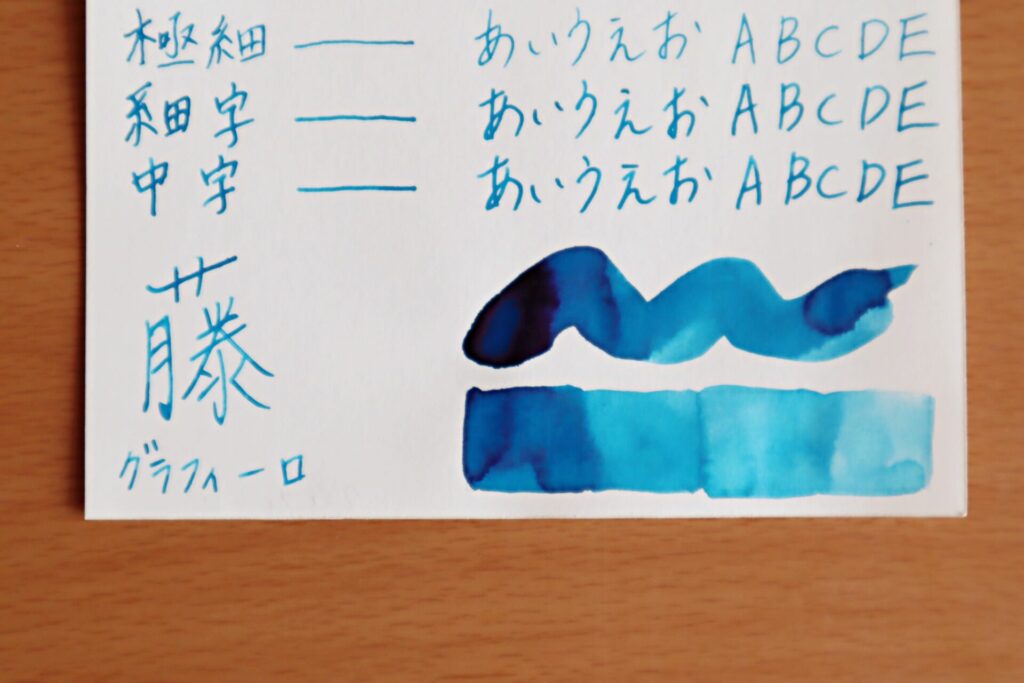 極細 あいうえお ABCDE
細字 あいうえお ABCDE
中字 あいうえお ABCDE
藤
グラフィーロ